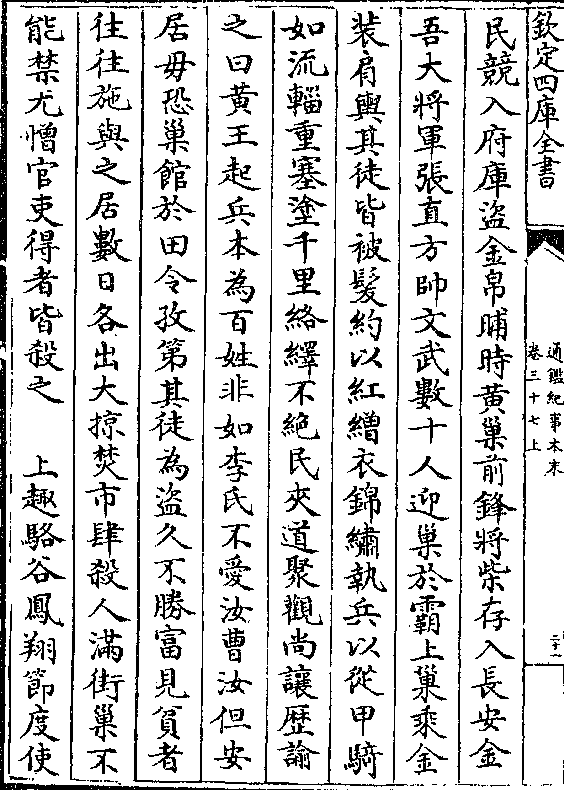 欽定四庫全書
通鑑紀事本末
卷三十七上
二十一
民競入府庫盗金帛晡時黄巢前鋒將柴存入長安金
吾大將軍張直方帥文武數十人迎巢於霸上巢乘金
装肩輿其徒皆被髮約以紅繒衣錦繡執兵以從甲騎
如流輜重塞塗千里絡繹不絶民夾道聚觀尚讓歴諭
之曰黄王起兵本為百姓非如李氏不愛汝曹汝但安
居毋恐巢館於田令孜第其徒為盗久不勝富見貧者
往往施與之居數日各出大掠焚市肆殺人滿街巢不
能禁尤憎官吏得者皆殺之　上趣駱谷鳳翔節度使